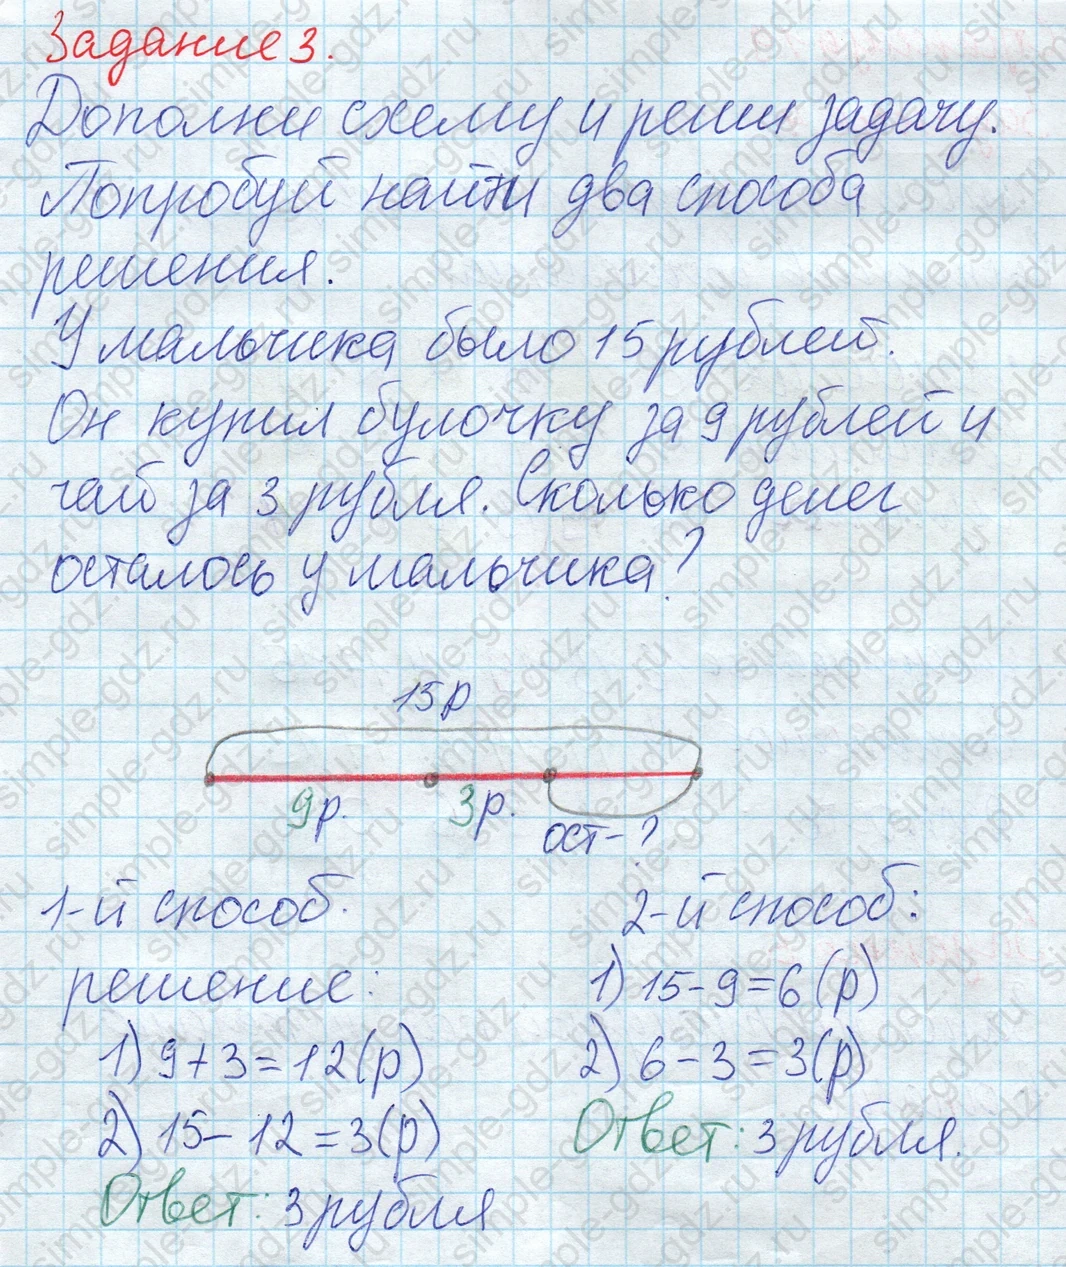 Задание 3.
Дополни схему и реши задачу.
Попробуй найти два способа
решения.
У мальчика было 15 рублей.
Он купил булочку за 9 рублей и
чай за 3 рубля. Сколько денег
осталось у мальчика?
15р
9р. 3р.
ост-?
1-й способ.
решение:
1) 9+3=12(р)
2) 15-12=3(р)
Ответ: 3 рубля
2-й способ:
1) 15-9=6(р)
2) 6-3=3(р)
Ответ: 3 рубля.
simple-gdz.ru